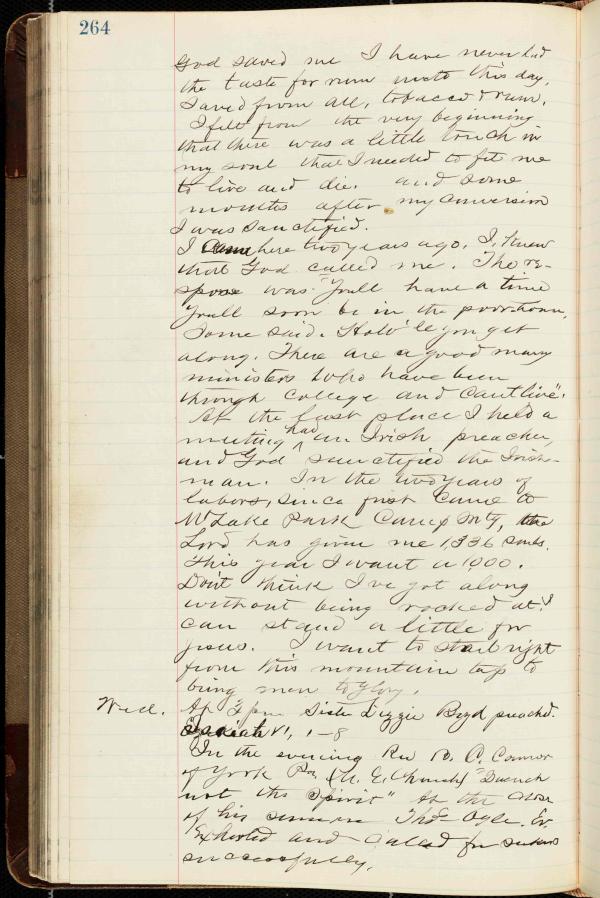 264
God saved me I have never had
the taste for rum unto this day,
Saved from all, tobacco & rum.
I felt from the very beginning
that there was a little touch in
my soul that I needed to fit me
to live and die. and some
months after my conversion
I was sanctified.
I came here two years ago. I knew
that God called me. The re-
sponse was "You'll have a time
You'll soon be in the poor-house,
Some said. How'll you get
along. There are a good many
ministers who have been
through college and cant live".
At the last place I held a
meeting had an Irish preacher,
and God sanctified the Irish-
man. In the two years of
labors, since first came to
Mt Lake Park Camp Mtg, the
Lord has given me 1,336 souls.
This year I want a 1000.
Don't think I've got along
without being rocked at. I
can stand a little for
Jesus. I want to start right
from this mountain top to
bring men to glory.
Wed. At 2 pm Sister Lizzie Boyd preached.
Isaiah VI, 1-8
In the evening Rev B. C. Connor
of York Pa, (M. E. Church) "Quench
not the Spirit" At the close
of his sermon Thos Ogle. Ev.
Exhorted and called for seekers
successfully.